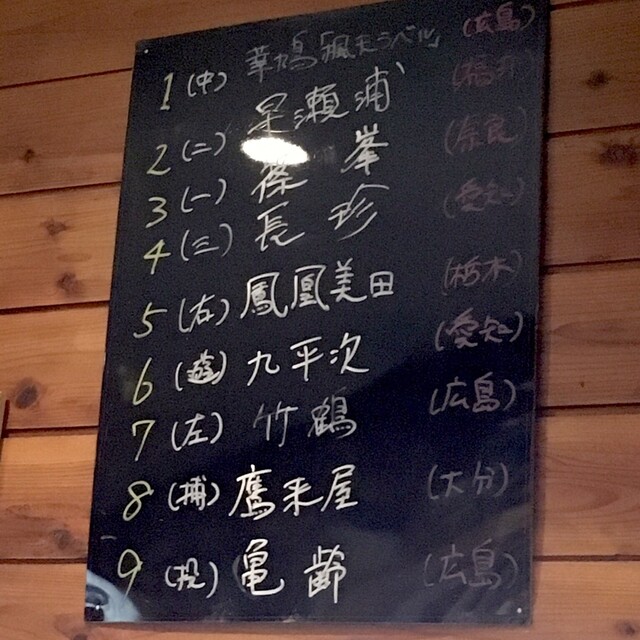 1 (中) 華鳩「楓天ラベル」 (広島)
2 (二) 早瀬浦 (福井)
3 (一) 篠峯 (奈良)
4 (三) 長珍 (愛知)
5 (右) 鳳凰美田 (栃木)
6 (遊) 九平次 (愛知)
7 (左) 竹鶴 (広島)
8 (捕) 鷹来屋 (大分)
9 (投) 亀齢 (広島)